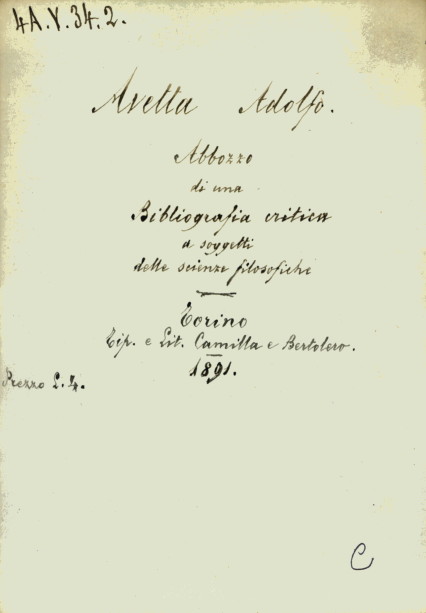 4A.V.34.2.
Avetta Adolfo.
Abbozzo
di una
Bibliografia critica
a soggetti
delle scienze filosofiche
Torino
Tip. e Lit. Camilla e Bertolero.
1891.
Prezzo L. 4.
C